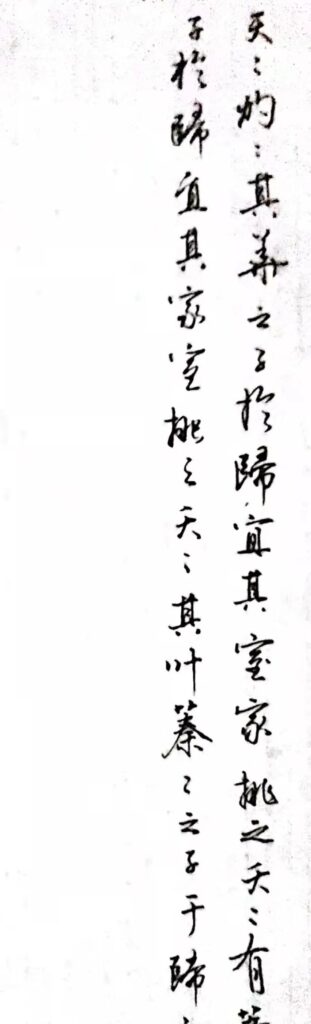 夭〻灼〻其華之子於歸宜其室家桃之夭〻有
子於歸宜其家室桃之夭〻其叶蓁〻之子于歸